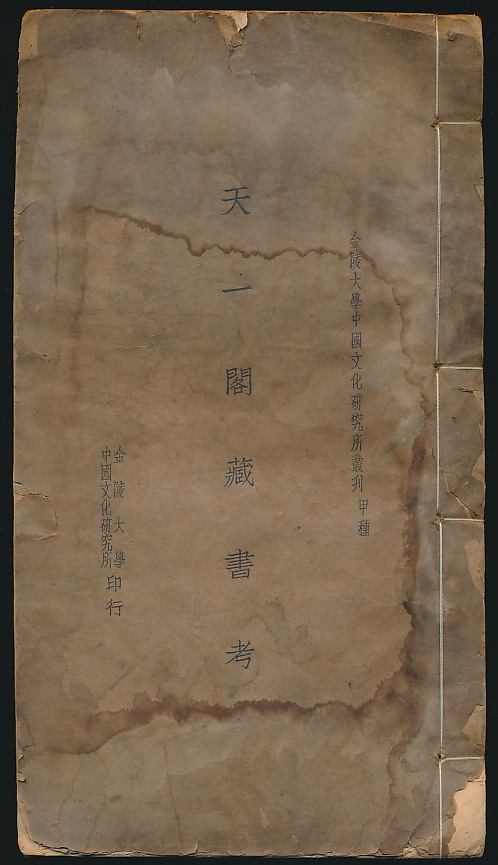 金陵大學中國文化研究所叢刊 甲種
天一閣藏書考
金陵大學
中國文化研究所
印行